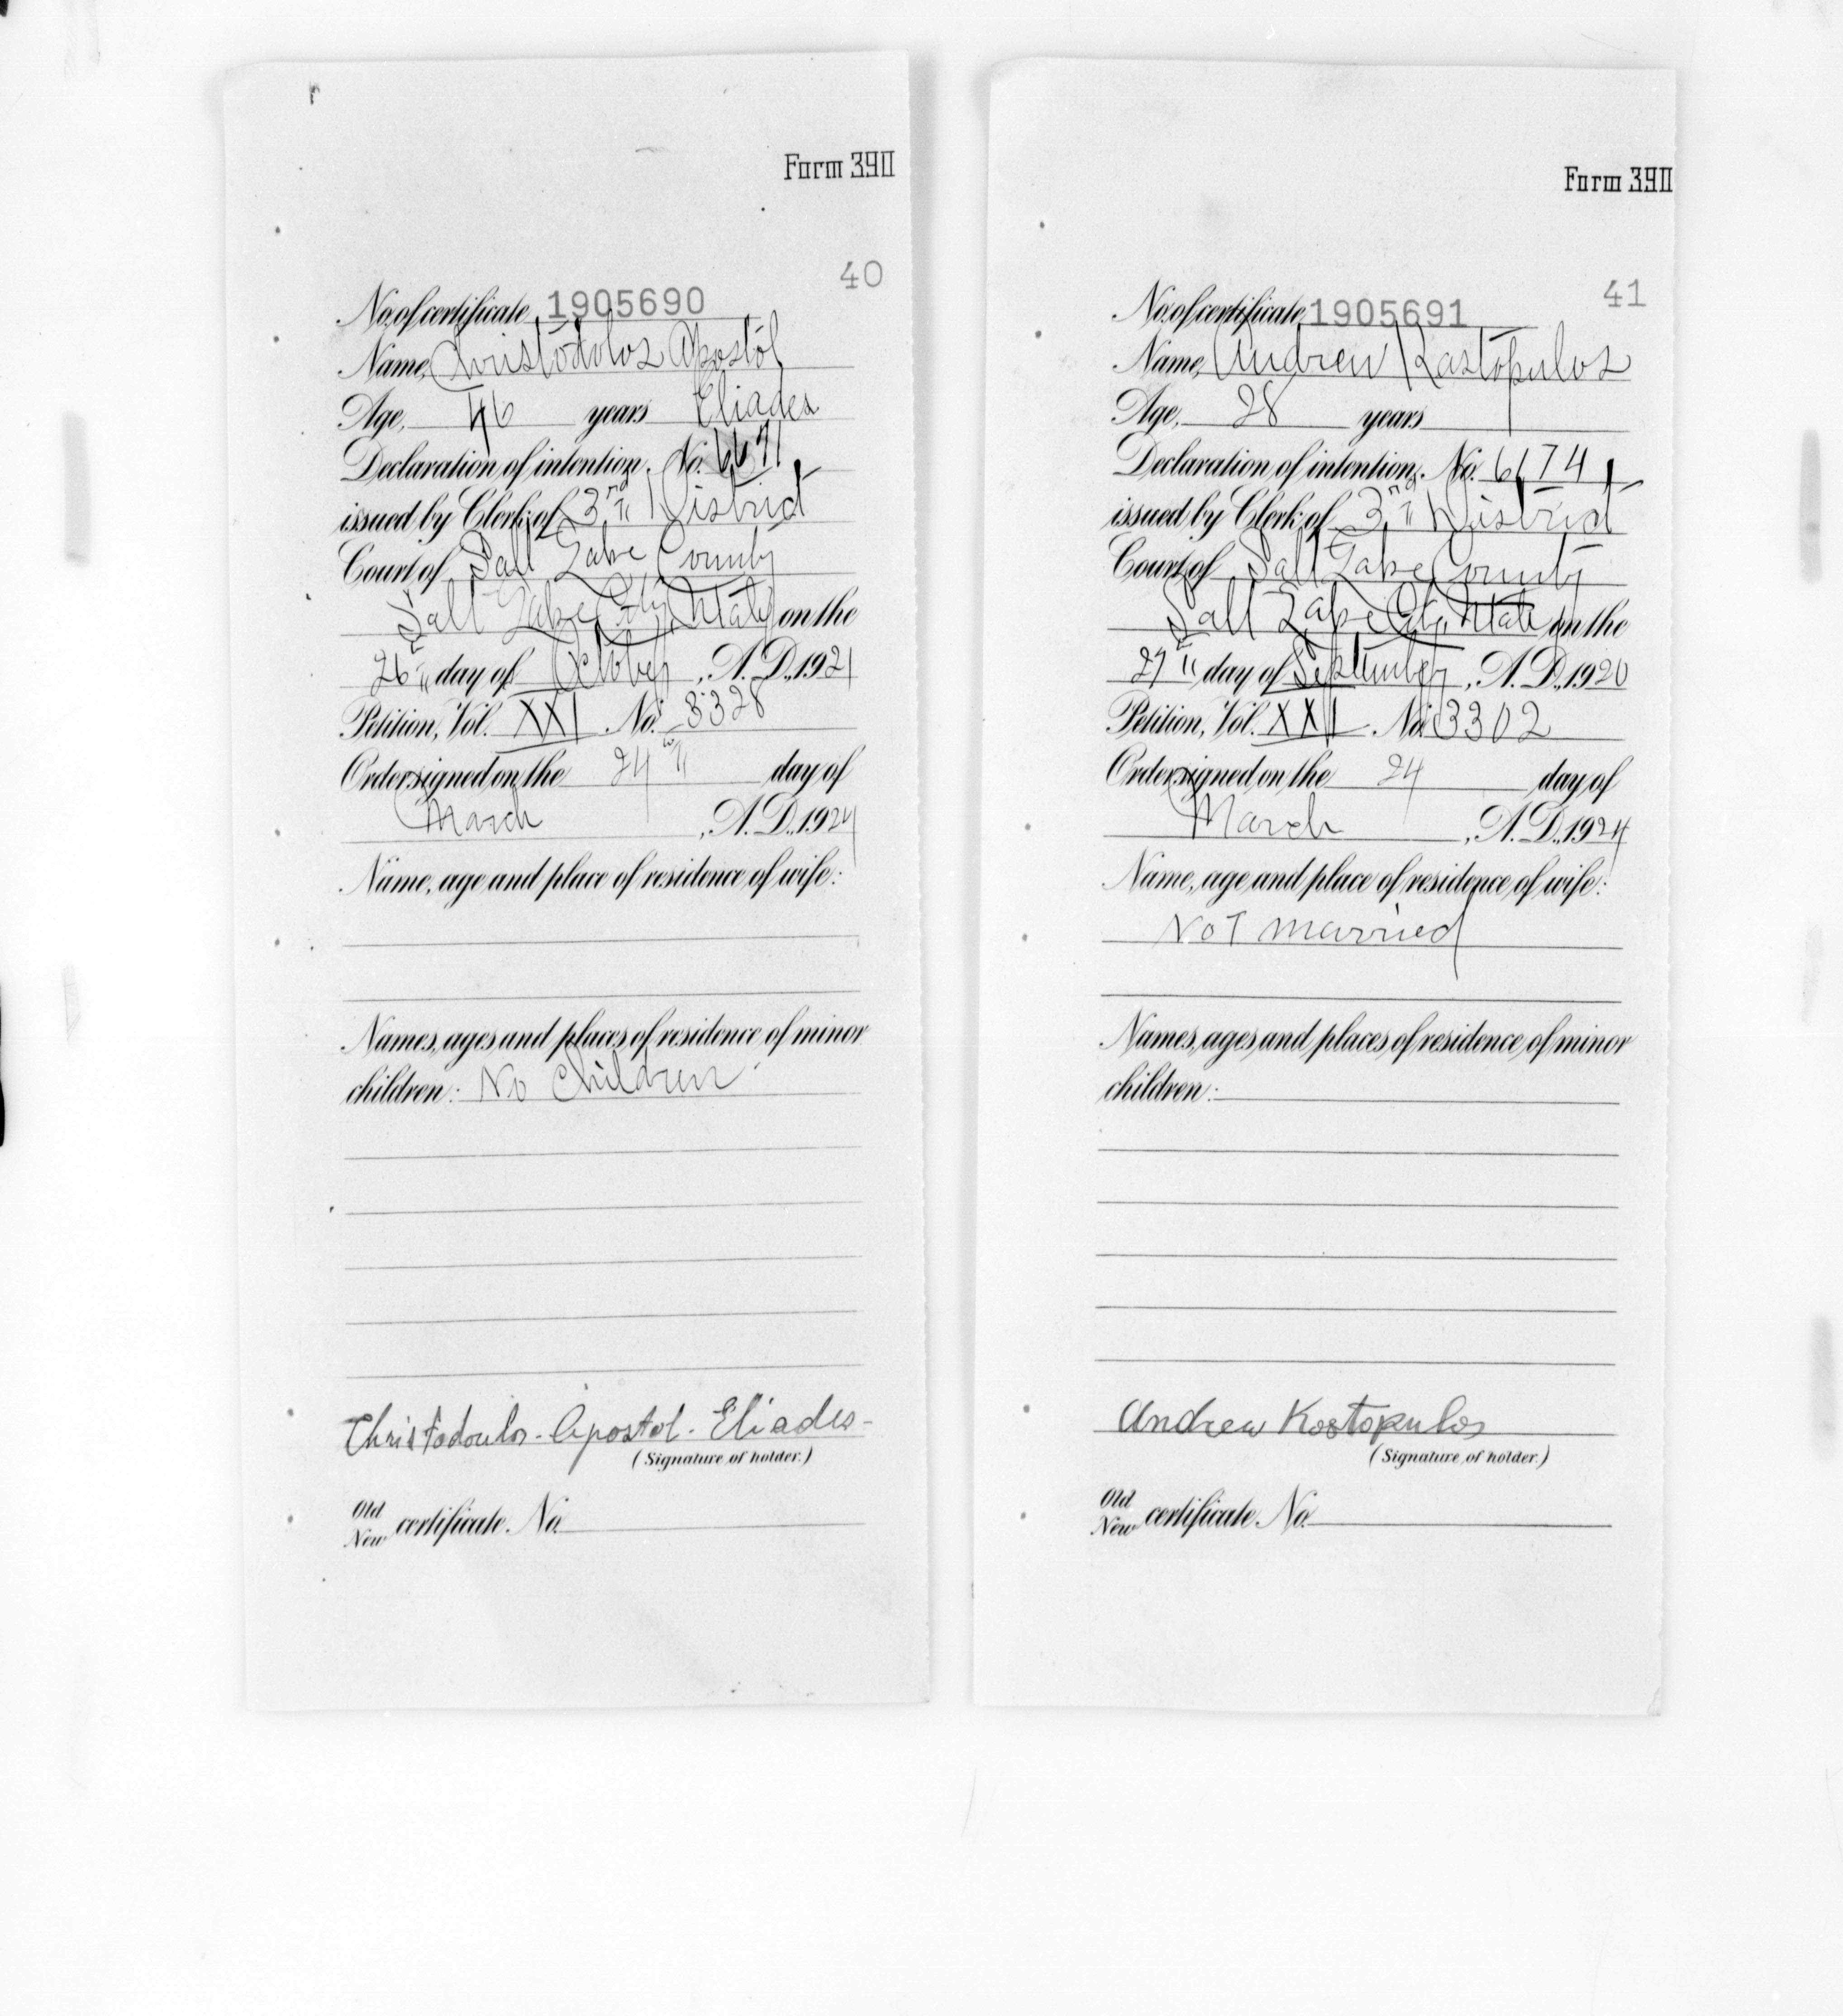 Form 390
40
No. of certificate 1905690
Name, Christodolos Apostol
Age, 46 years Eliades
Declaration of intention, No. 6671,
issued by Clerk of 3rd District
Court of Salt Lake County
Salt Lake City, Utah, on the
26" day of October, A.D., 1921
Petition, Vol. XXI No. 3328
Order signed on the 24" day of
March, A.D., 1924
Name, age and place of residence of wife:
Names, ages and places of residence of minor
children: No Children
Christodoulos - Apostol - Eliades -
(Signature of holder.)
Old
New certificate No.
Form 390
41
No. of certificate, 1905691
Name, Andrew Kastopulos
Age, 28 years
Declaration of intention, No. 6174,
issued by Clerk of 3rd District
Court of Salt Lake County
Salt Lake City, Utah on the
27" day of September, A.D., 1920
Petition, Vol. XXI No. 3302
Order signed on the 24 day of
March, A.D., 1924
Name, age and place of residence of wife:
Not married
Names, ages and places of residence of minor
children:
Andrew Kostopulos
(Signature of holder.)
Old
New certificate No.